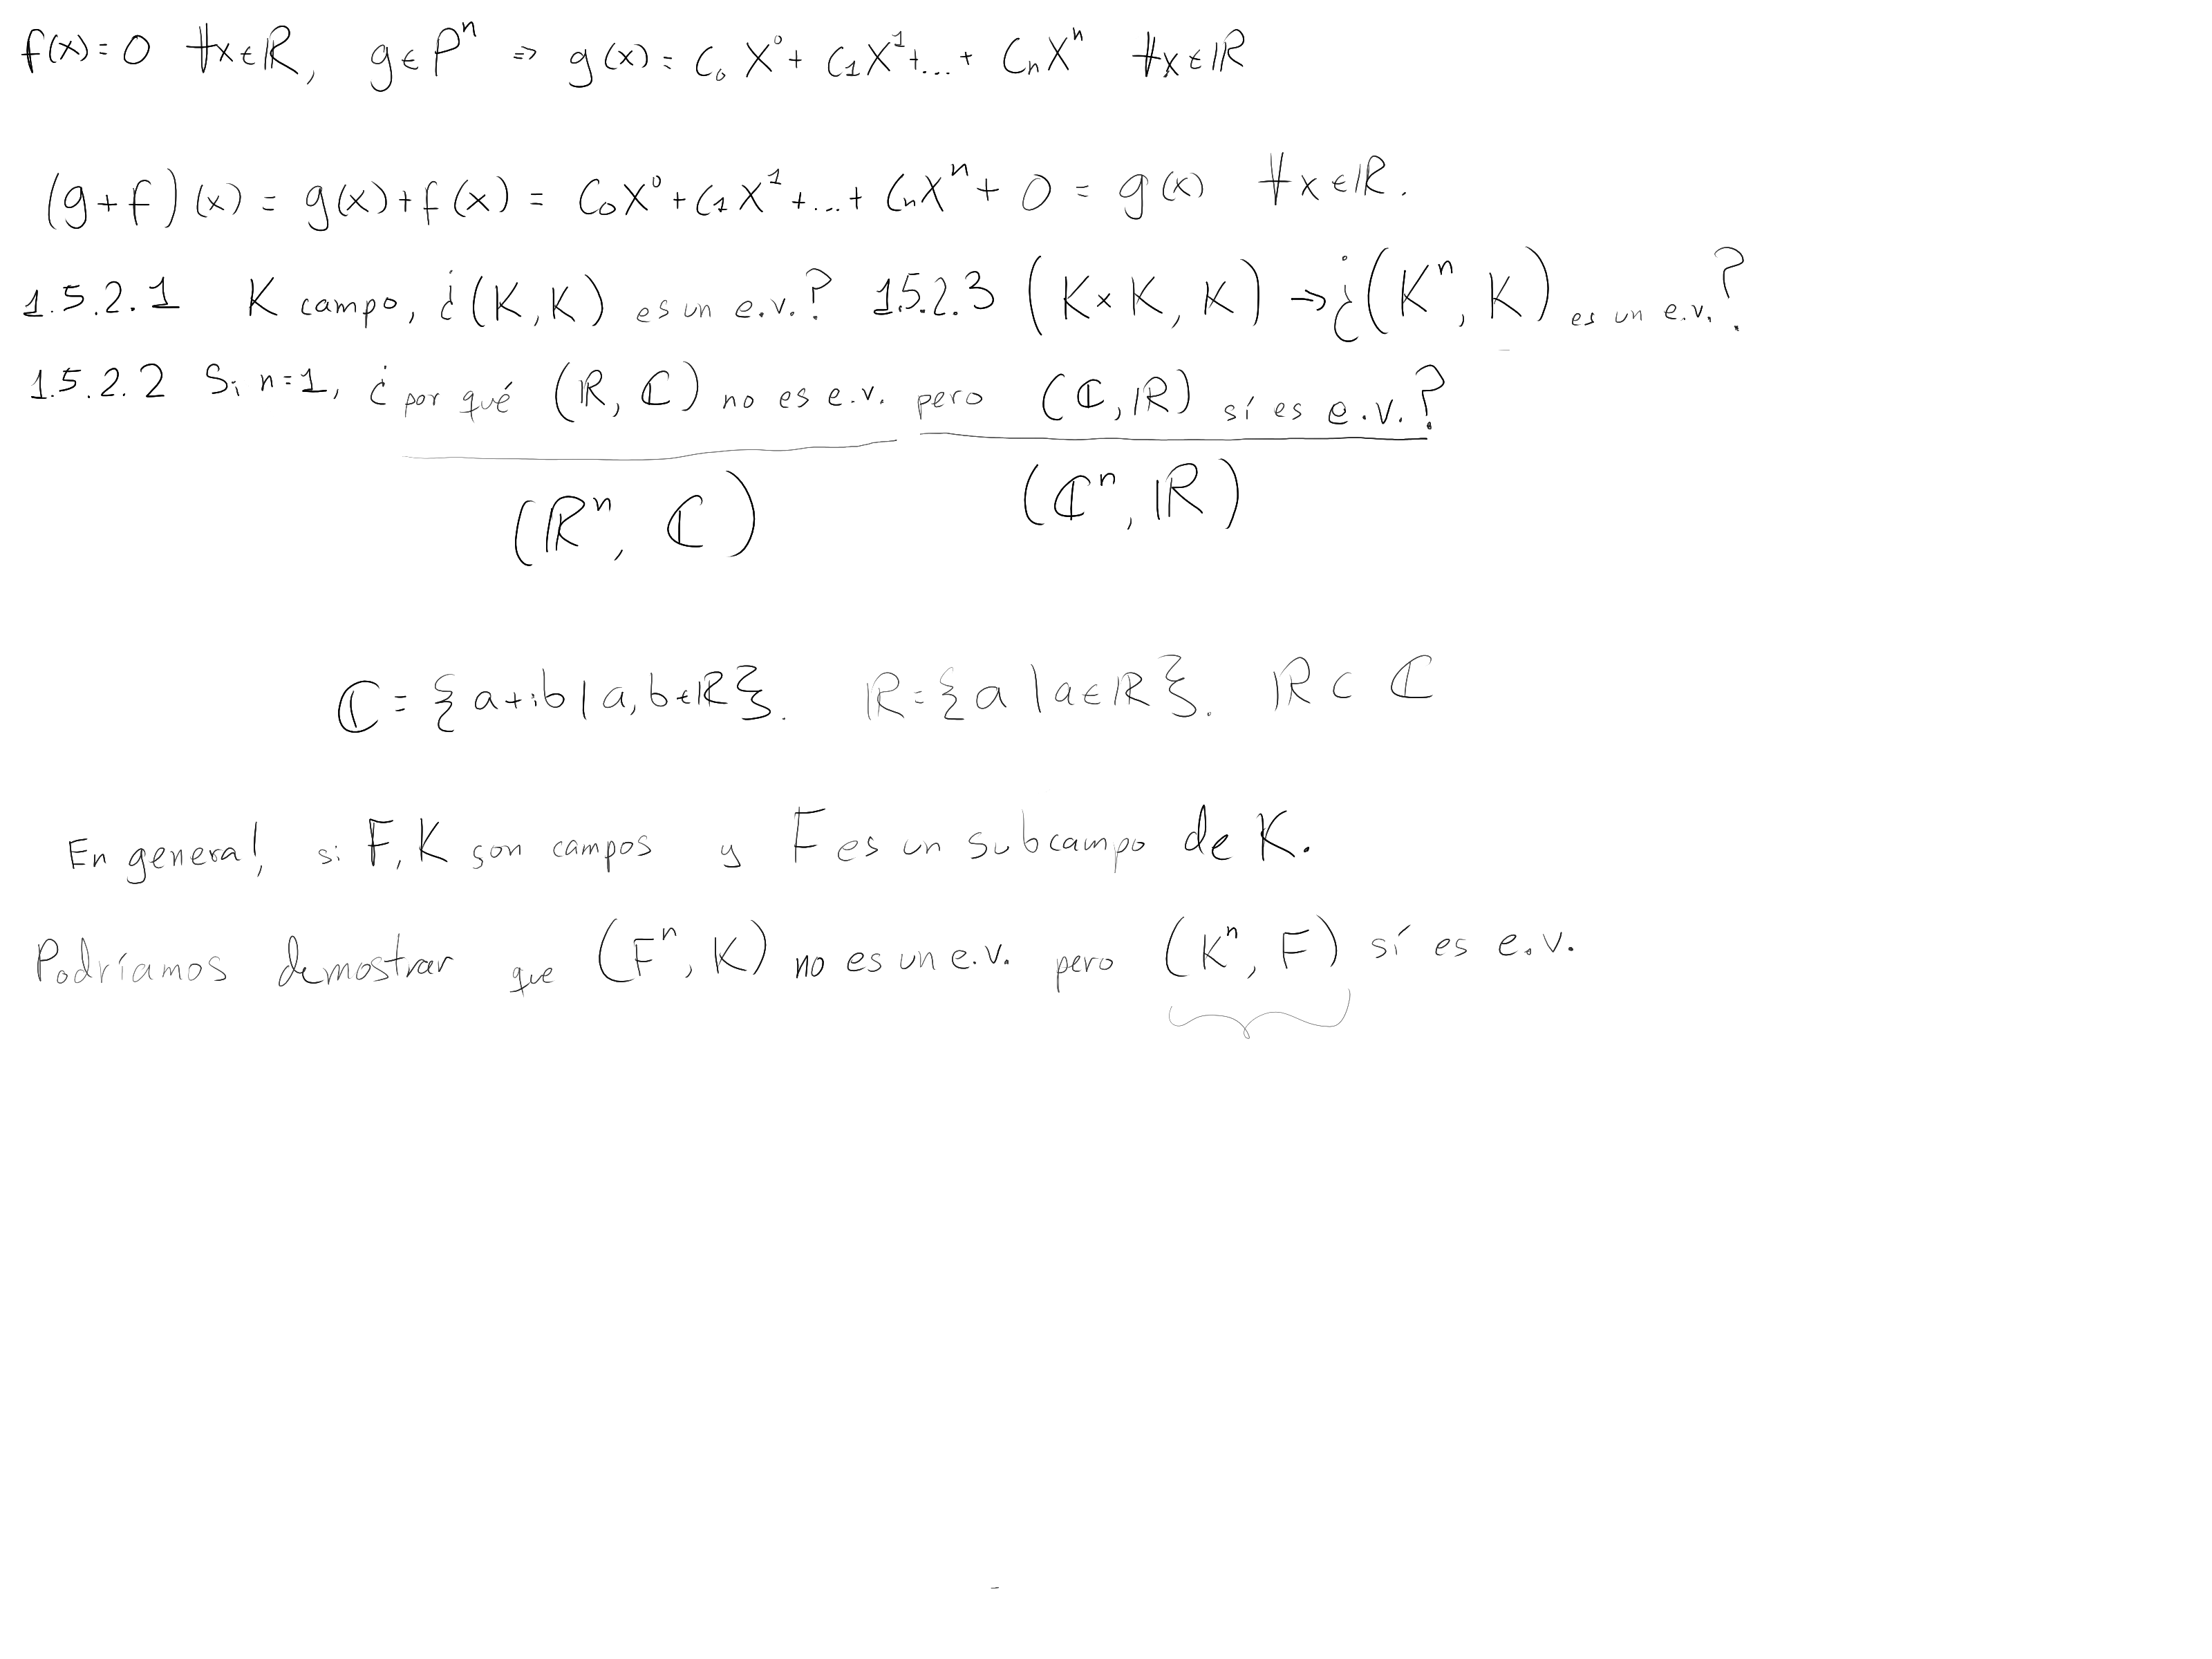 f(x)=0 ∀x∈ℝ, g∈Pⁿ ⇒ g(x)= C₀X⁰+ C₁X¹+...+ CₙXⁿ ∀x∈ℝ
(g+f)(x) = g(x)+f(x) = C₀X⁰+C₁X¹+...+ CₙXⁿ+ 0 = g(x) ∀x∈ℝ.
1.5.2.1 K campo, ¿(K,K) es un e.v.? 1.5.2.3 (K×K, K) → ¿(Kⁿ, K) es un e.v.?
1.5.2.2 Si n=1, ¿por qué (ℝ, ℂ) no es e.v. pero (ℂ,ℝ) sí es e.v.?
(ℝⁿ, ℂ) (ℂⁿ, ℝ)
ℂ = {a+ib | a, b∈ℝ}. ℝ={a | a∈ℝ}. ℝ⊂ ℂ
En general, si F,K son campos y F es un subcampo de K.
Podríamos demostrar que (Fⁿ, K) no es un e.v. pero (Kⁿ, F) sí es e.v.